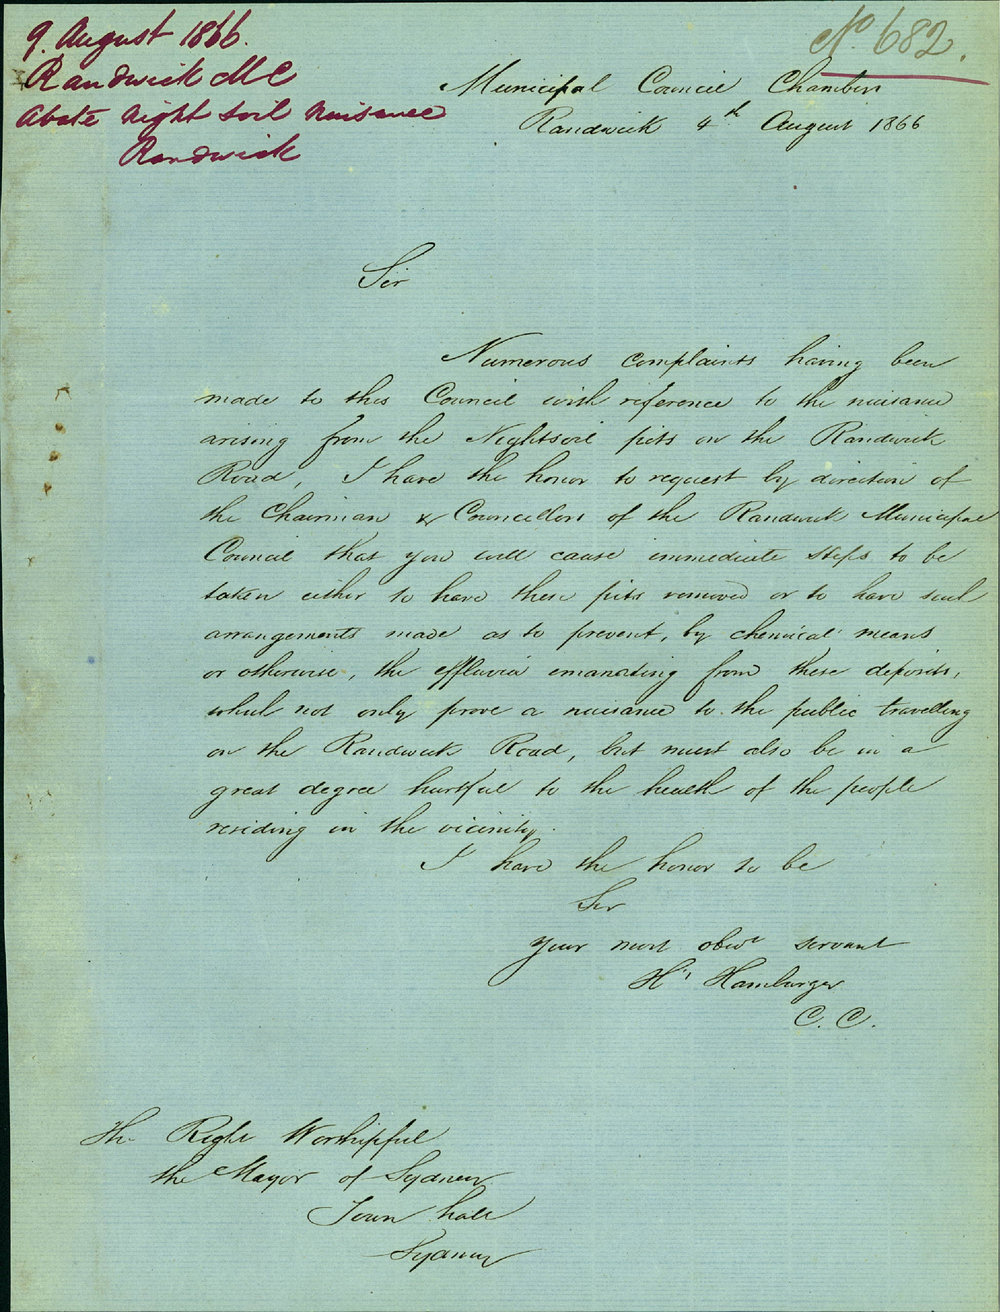 9. August 1866.
Randwick M C
Abate Night Soil Nuisance
Randwick
No 682.
Municipal Council Chambers
Randwick 4th August 1866
Sir
Numerous complaints having been
made to this Council with reference to the nuisance
arising from the Nightsoil pits on the Randwick
Road, I have the honor to request by direction of
the Chairman & Councillors of the Randwick Municipal
Council that you will cause immediate steps to be
taken either to have these pits removed or to have such
arrangements made as to prevent, by chemical means
or otherwise, the effluvia emanating from these deposits,
which not only prove a nuisance to the public travelling
on the Randwick Road, but must also be in a
great degree hurtful to the health of the people
residing in the vicinity.
I have the honor to be
Sir
Your most obedt servant
Hy Hamburger
C. C.
The Right Worshipful
the Mayor of Sydney
Town hall
Sydney